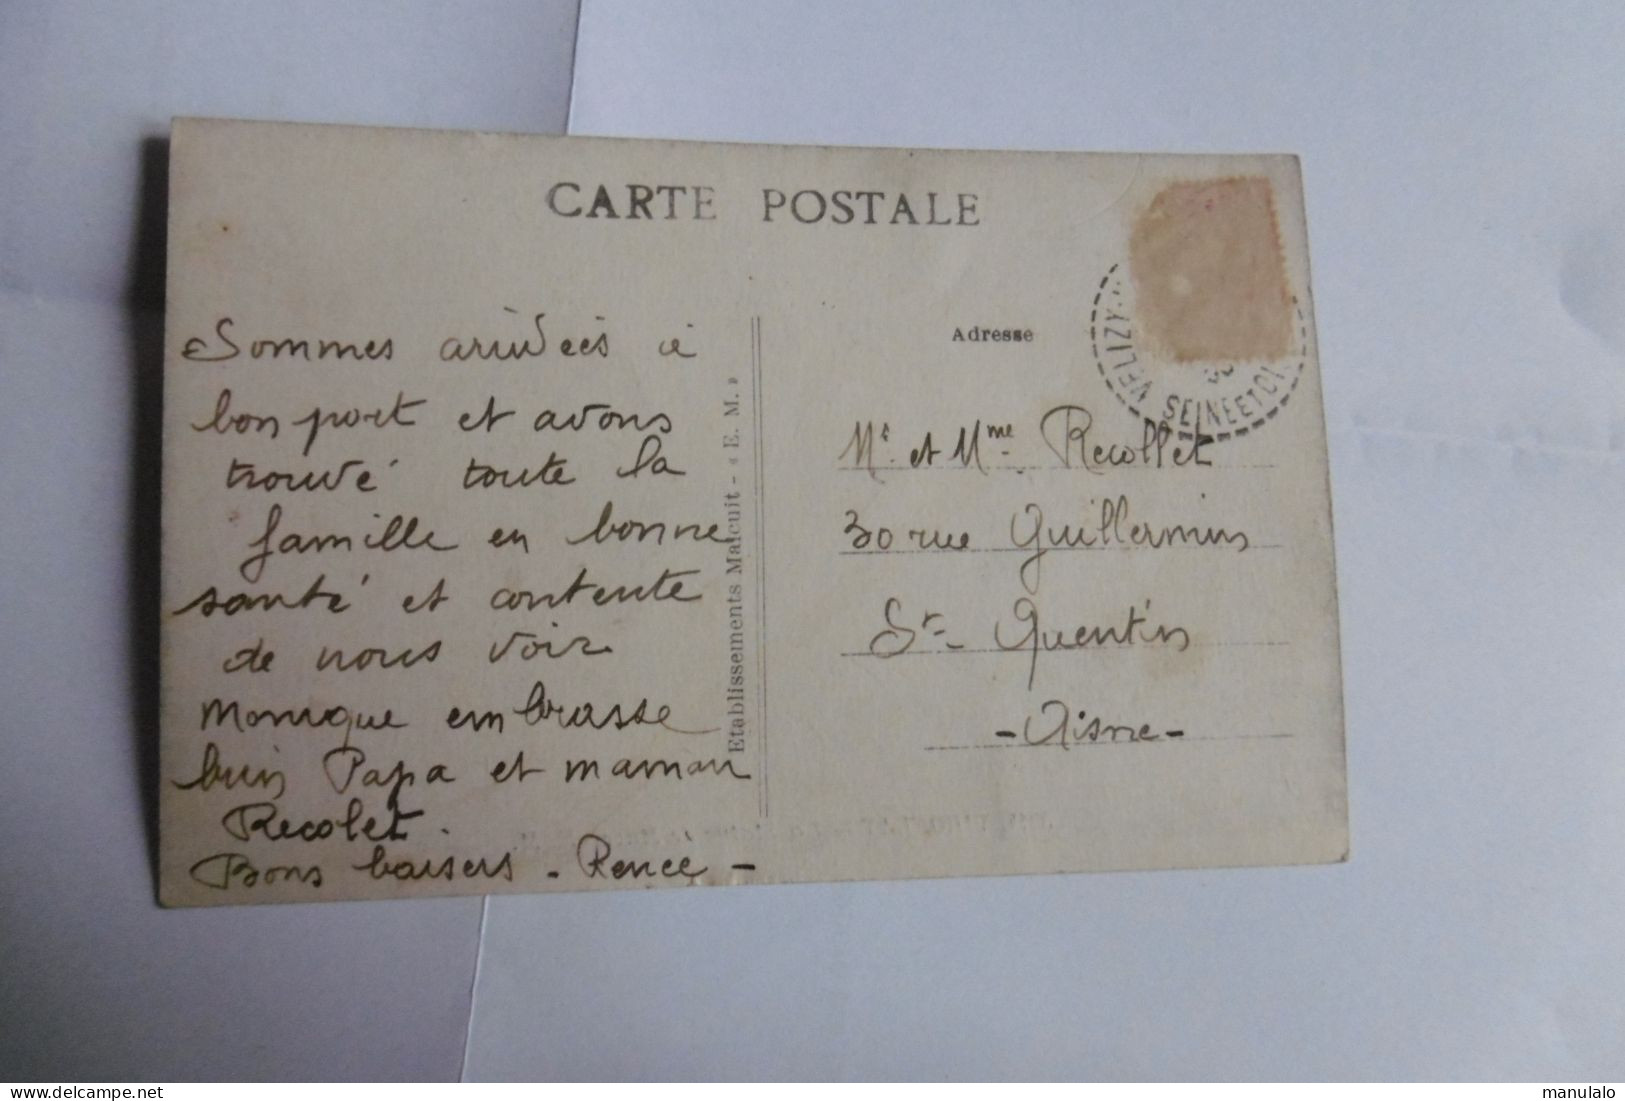 CARTE POSTALE
Sommes arrivées ici
bon port et avons
trouvé toute la
famille en bonne
santé et contente
de nous voir
Monique embrasse
bien Papa et maman
Recolet.
Bons baisers - Renée -
Etablissements Malcuit - « E. M. »
Adresse
VELIZY
SEINE ET OI
Mr. et Mme. Recollet
30 rue Guillermin
St- Quentin
- Aisne -
manulalo